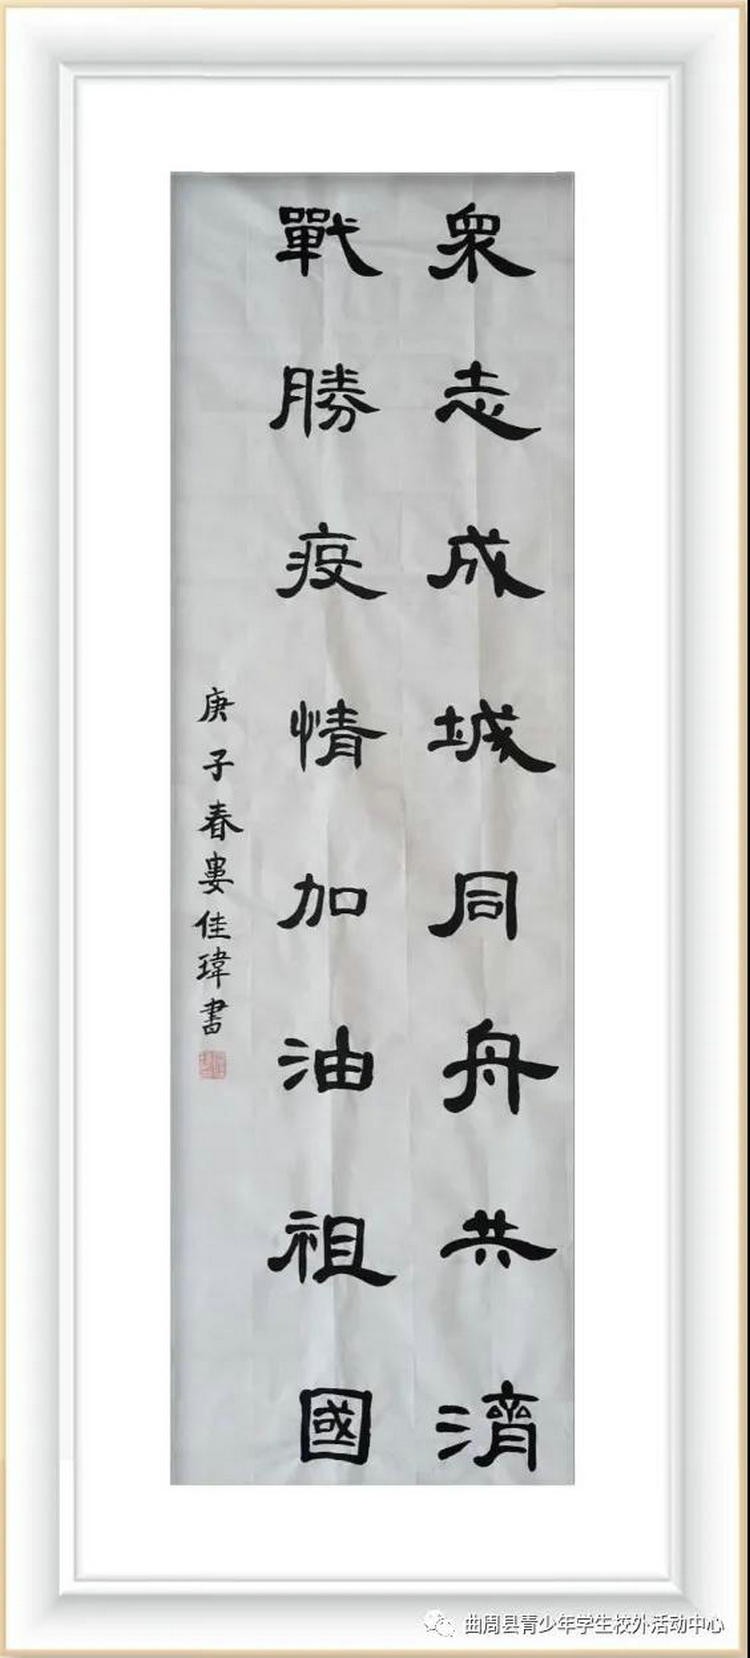 衆志成城同舟共濟
戰勝疫情加油祖國
庚子春婁佳瑋書
曲周县青少年学生校外活动中心